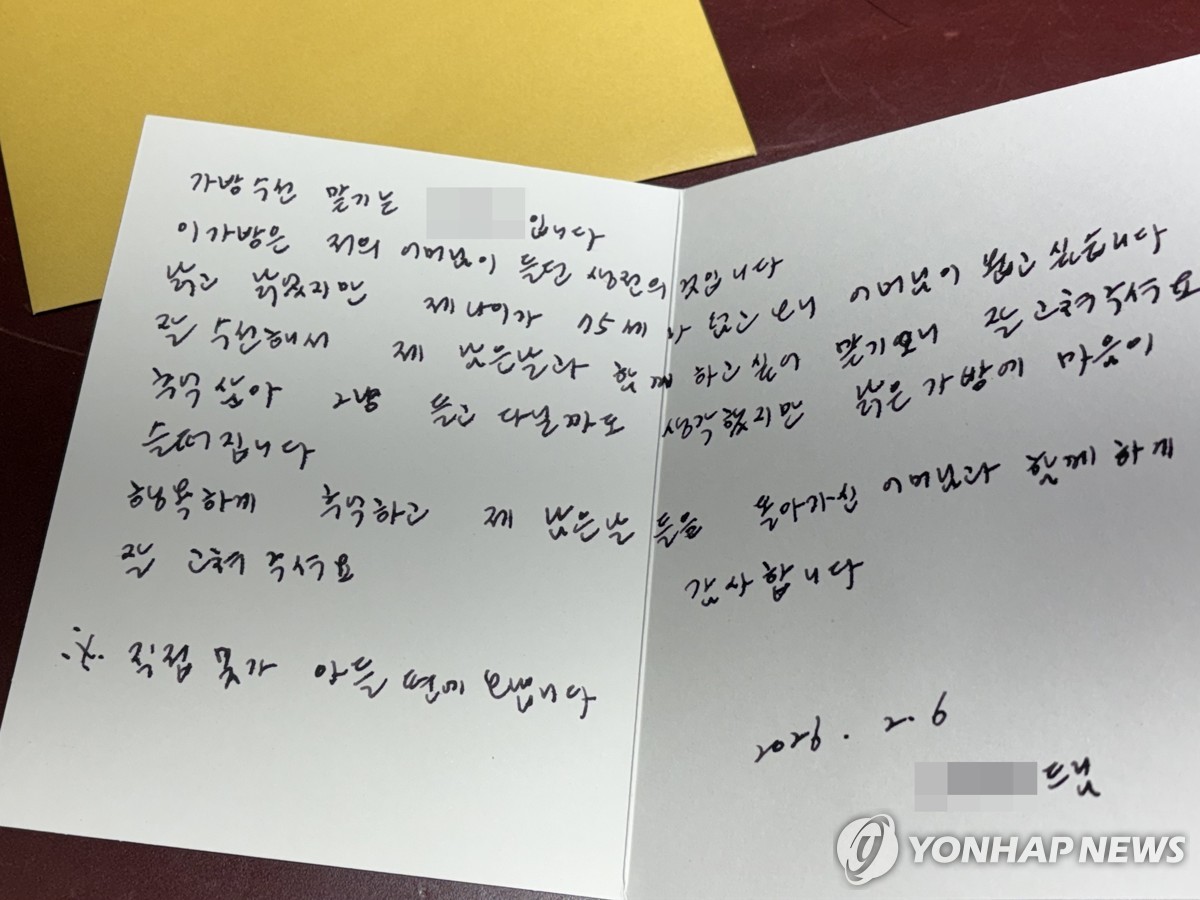 가방수선 맡기는 입니다
이가방은 저의 어머님이 들던 생전의 것입니다
낡고 낡았지만 제 나이가 75세가 되고 보니 어머님이 뵙고 싶습니다
잘 수선해서 제 남은날과 함께 하고싶어 맡기오니 잘 고쳐주셔요
추억 삼아 그냥 들고 다닐까도 생각했지만 낡은가방에 마음이
슬퍼집니다
행복하게 추억하고 제 남은날들을 돌아가신 어머님과 함께 하게
잘 고쳐 주셔요 감사합니다
※ 직접 못가 아들 편에 보냅니다
2026. 2. 6
드림
YONHAP NEWS